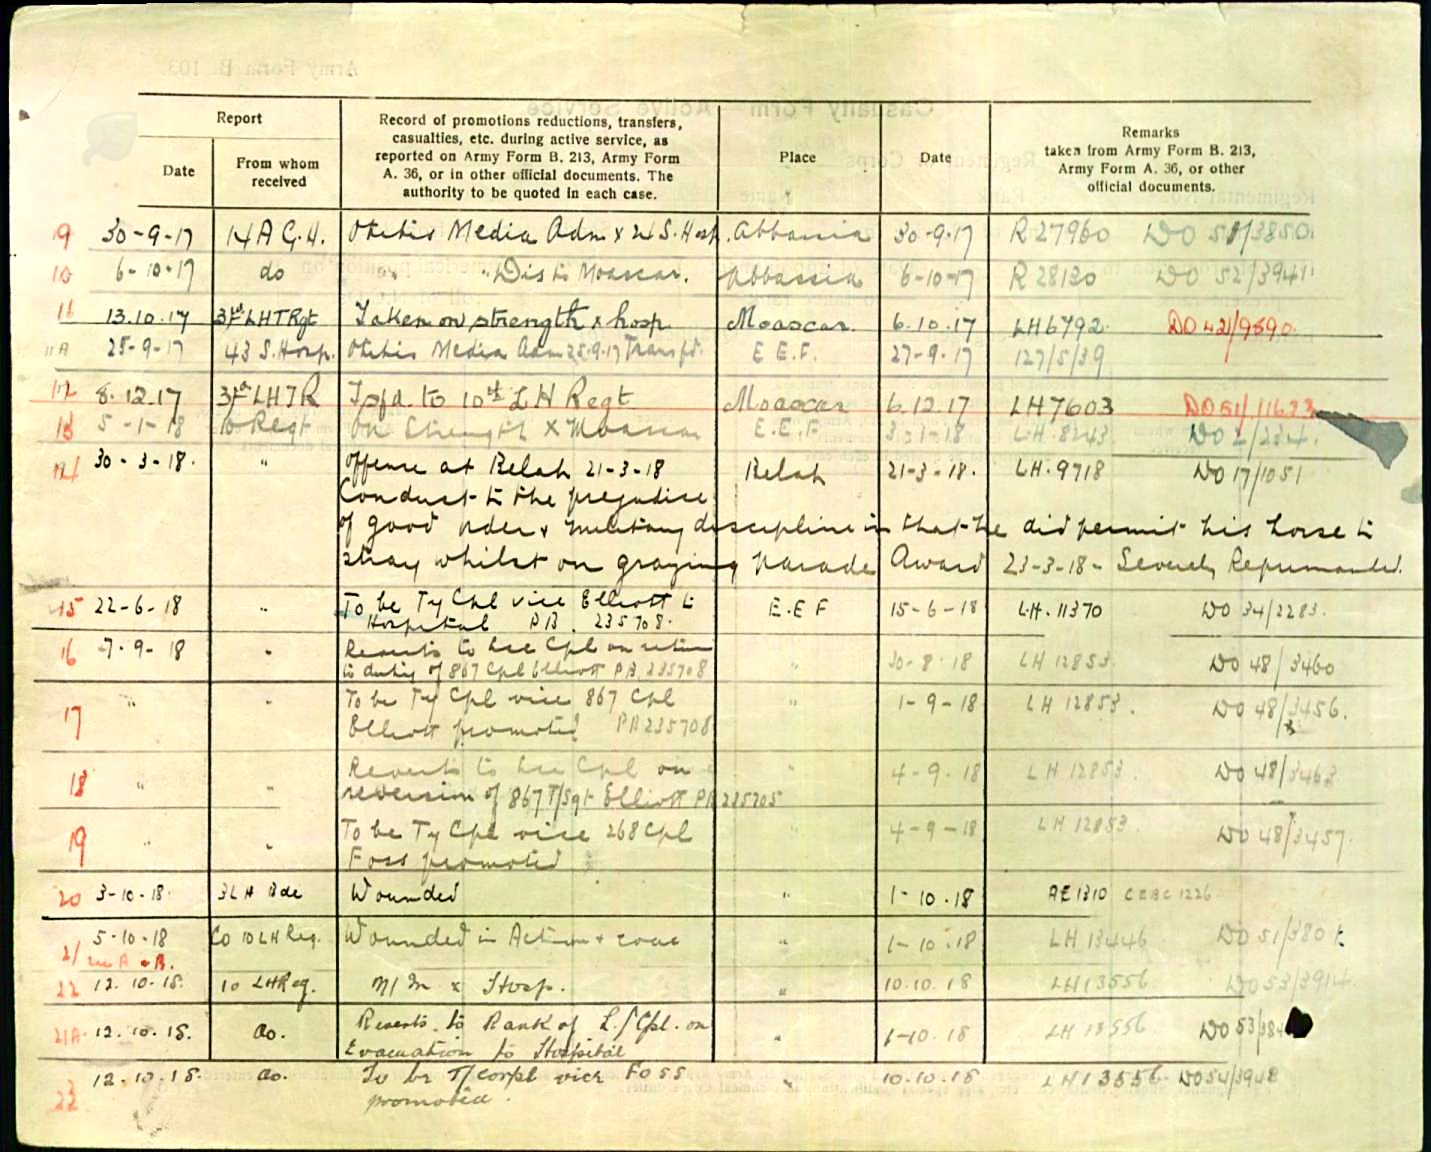 Army Form B. 103.
Casualty Form - Active Service
Report
Date
From whom received
Record of promotions reductions, transfers,
casualties, etc. during active service, as
reported on Army Form B. 213, Army Form
A. 36, or in other official documents. The
authority to be quoted in each case.
Place
Date
Remarks
taken from Army Form B. 213,
Army Form A. 36, or other
official documents.
9 30-9-17 14 A G.H. Otitis Media Adm x 24 S. Hosp. Abbassia 30-9-17 R 27960 DO 51/3850
10 6-10-17 do " " Dis to Moascar. Abbassia 6-10-17 R 28130 DO 52/3941
11 13.10.17 3rd LHTRgt Taken on strength x hosp Moascar. 6.10.17 LH6792. DO 42/9590.
11A 25-9-17 43 S. Hosp. Otitis Media Adm 25.9.17 Transfd. E E.F. 27-9-17 127/5/39
12 8.12.17 3rd LHTR Tsfd. to 10th L H Regt Moascar 6.12.17 LH7603 DO 51/11633
13 5-1-18 10 Regt On Strength x Moascar E.E.F 3-1-18 LH.8243. DO 2/234.
14 30-3-18. " Offence at Belah 21-3-18 Belah 21-3-18. LH.9718 DO 17/1051
Conduct to the prejudice
of good order & military discipline in that he did permit his horse to
stray whilst on grazing parade Award 23-3-18 - Severely Reprimanded.
15 22-6-18 " To be Ty Cpl vice Elliott to E.E F 15-6-18 LH.11370 DO 34/2283.
Hospital PB. 235708.
16 7-9-18 " Reverts to Lce Cpl on return " 30-8-18 LH 12853 DO 48/3460
to duty of 867 Cpl Elliott PB 235708
17 " " To be Ty Cpl vice 867 Cpl " 1-9-18 LH 12853. DO 48/3456.
Elliott promoted PB 235708
18 " " Reverts to Lce Cpl on " 4-9-18 LH 12853 DO 48/3463
reversion of 867 T/Sgt Elliott PB 235705
19 " " To be Ty Cpl vice 268 Cpl " 4-9-18 LH 12853. DO 48/3457.
Foss promoted
20 3-10-18. 3 L H Bde Wounded " 1-10.18 AE 1310 CEBC 1226
21 5-10-18 CO 10 LH Reg. Wounded in Action & evac " 1-10-18 LH 13446 DO 51/380
22 12.10.18. 10 LHReg. N/M x Hosp. " 10.10.18 LH13556 DO 53/3914
21A. 12.10.18. do. Reverts to Rank of L/Cpl. on " 1-10.18 LH 13556 DO 53/384
Evacuation to Hospital
23 12.10.18. do. To be T/Corpl vice Foss " 10.10.18 LH13556 DO 54/3948
promoted.